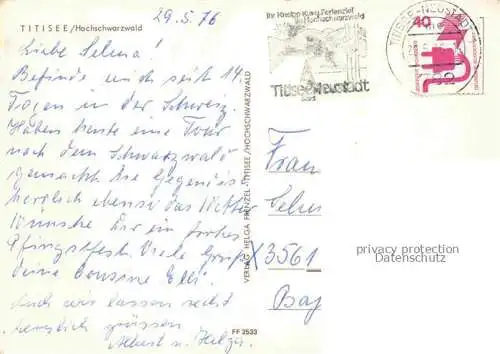 29.5.76
TITISEE/Hochschwarzwald
Liebe Selma!
Befinde mich seit 14
Tagen in der Schweiz.
Haben heute eine Tour
nach dem Schwarzwald
gemacht. Die Gegend ist
herrlich ebenso das Wetter
Wünsche Dir ein frohes
Pfingstfest. Viele Grüße
Deine Cousine Elli.
Auch wir lassen recht
herzlich grüssen
Albert u. Helga.
VERLAG HELGA FRENZEL · TITISEE/HOCHSCHWARZWALD
FF 2533
Ihr Kneipp-Kur u. Ferienziel
im Hochschwarzwald
Titisee-Neustadt
TITISEE-NEUSTADT
40
Frau
Selm
3561
Bay
privacy protection
Datenschutz